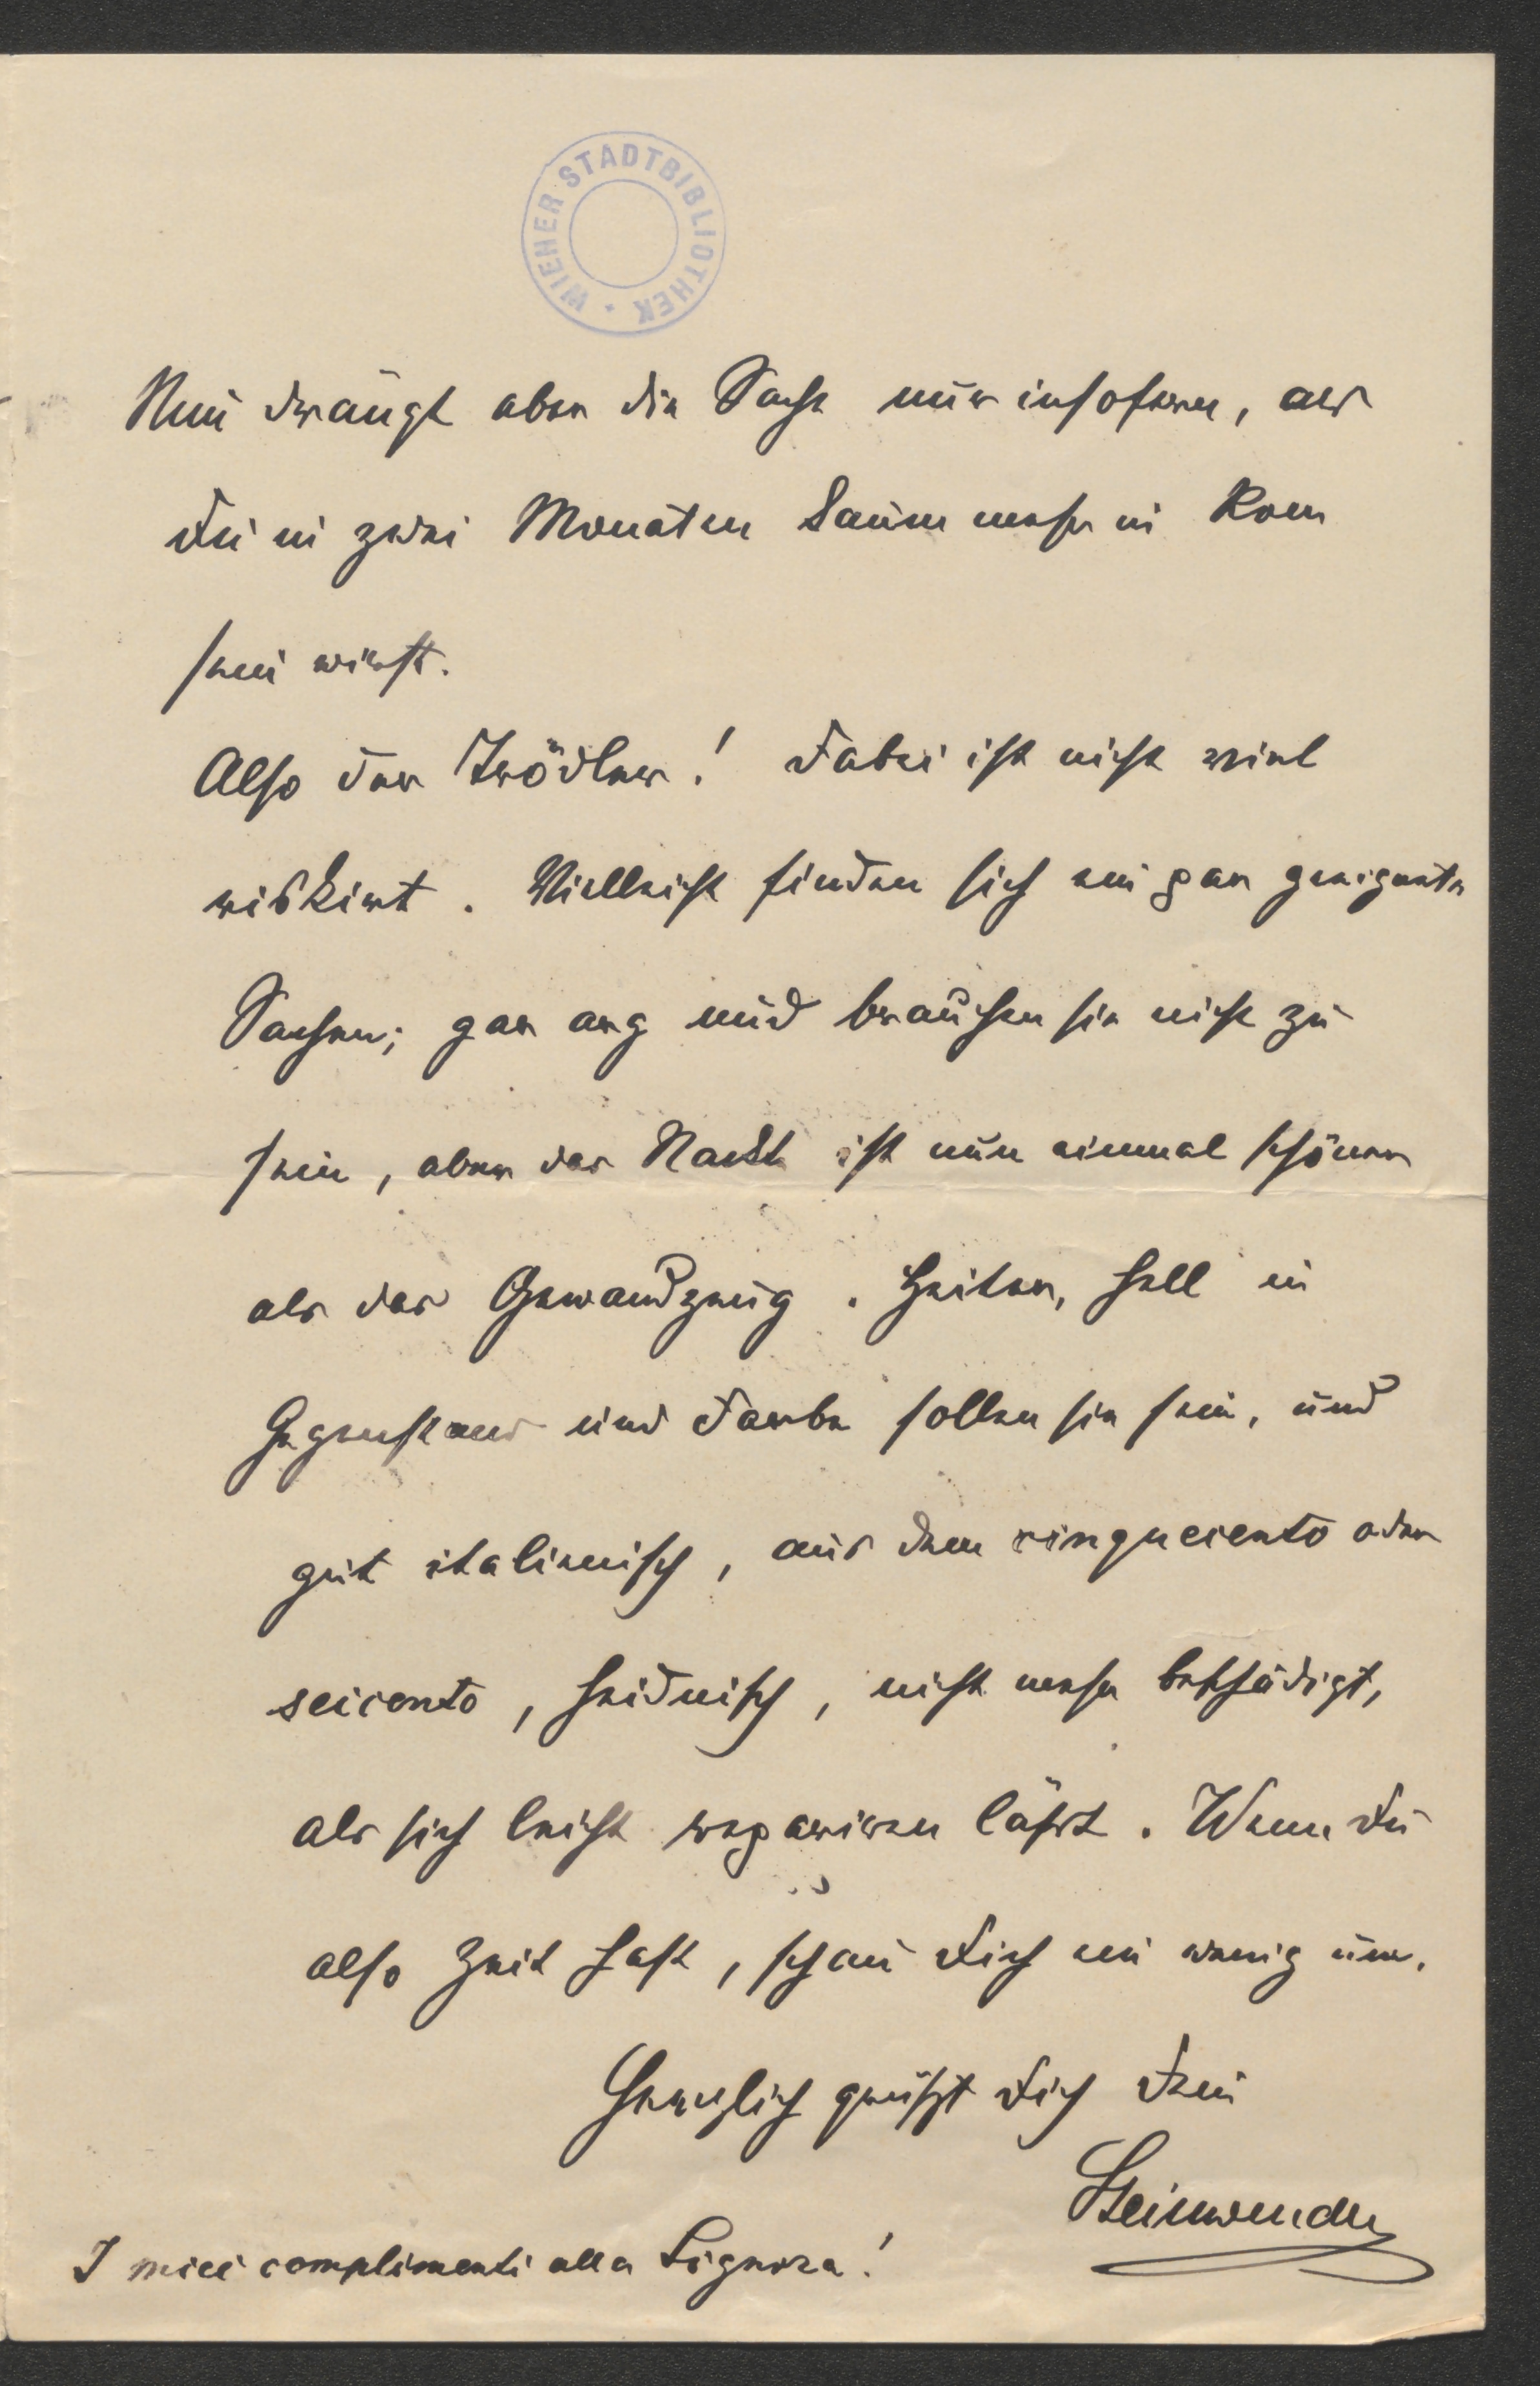 WIENER STADTBIBLIOTHEK
Nun drängt aber die Sache nur insofern, als
Du in zwei Monaten kaum mehr in Rom
sein wirst.
Also der Trödler! Dabei ist nicht viel
riskirt. Vielleicht finden sich ein par geeignete
Sachen; gar arg nud brauchen sie nicht zu
sein, aber das Nackte ist nun einmal schöner
als das Gewandzeug. Heiter, hell in
Gegenstand und Farbe sollen sie sein, und
gut italienisch, aus dem cinquecento oder
seicento, heidnisch, nicht mehr beschädigt,
als sich leicht repariren läßt. Wenn Du
also Zeit hast, schau Dich ein wenig um.
Herzlich grüßt Dich Dein
Steinwender
I miei complimenti alla Signora!